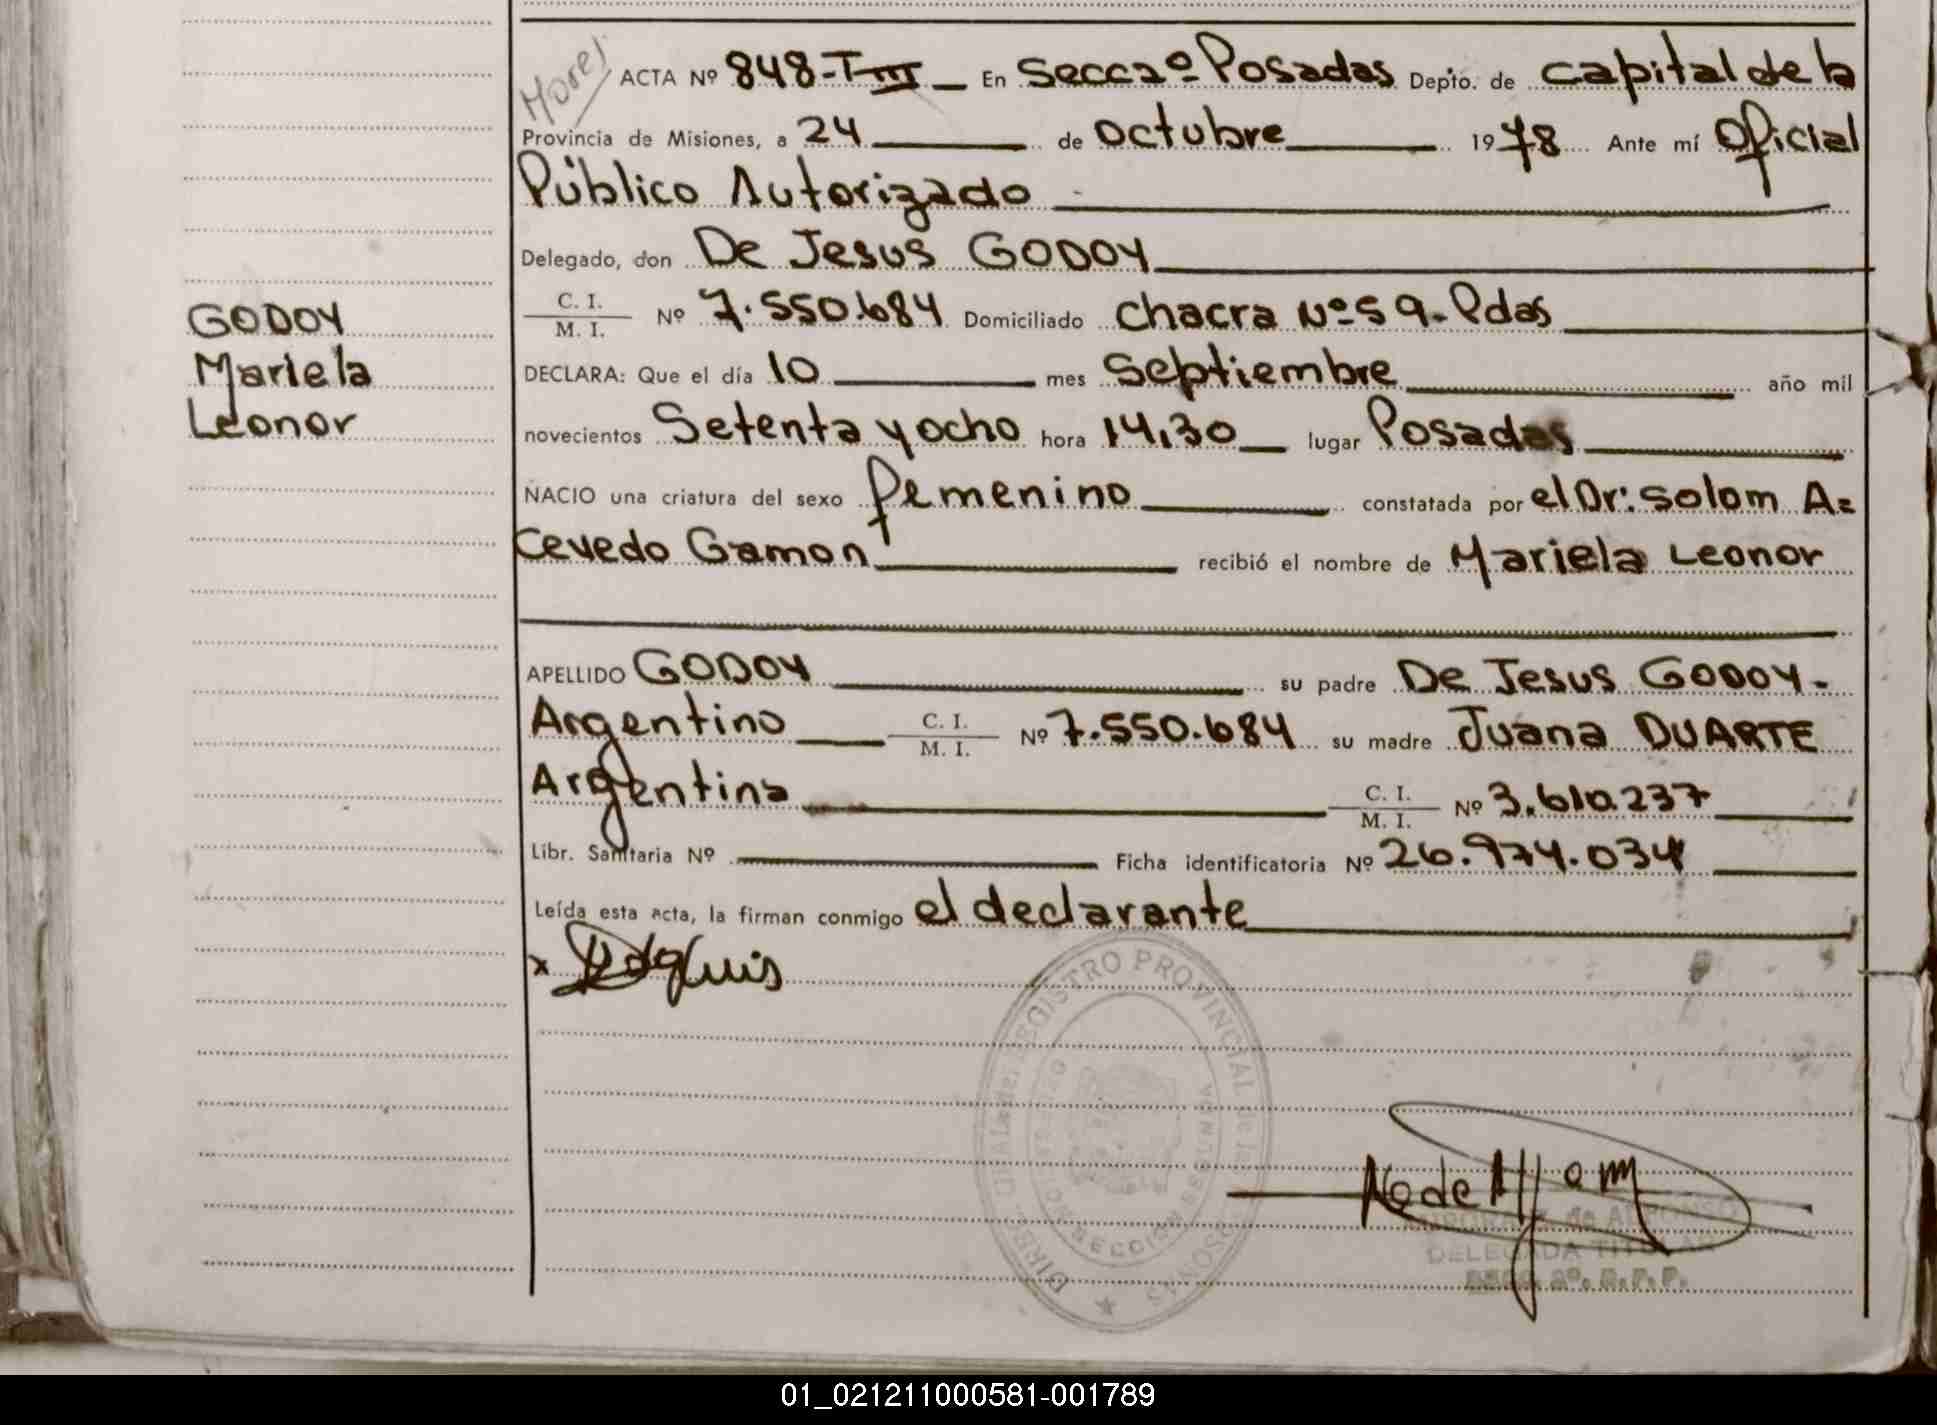 ACTA Nº 848-T III En Secc 2º Posadas Depto. de Capital de la
Provincia de Misiones, a 24 de Octubre 1978 Ante mí Oficial
Público Autorizado
Delegado, don De Jesus GODOY
C. I.
M. I. Nº 7.550.684 Domiciliado chacra Nº 59-Pdas
GODOY
Mariela
Leonor
DECLARA: Que el día 10 mes Septiembre año mil
novecientos Setenta y ocho hora 14,30 lugar Posadas
NACIO una criatura del sexo femenino constatada por el Dr: Solom A=
cevedo Gamon recibió el nombre de Mariela Leonor
APELLIDO GODOY su padre De Jesus GODOY.
Argentino C. I. M. I. Nº 7.550.684 su madre Juana DUARTE
Argentina C. I. M. I. Nº 3.610.237
Libr. Sanitaria Nº Ficha identificatoria Nº 26.974.034
Leída esta acta, la firman conmigo el declarante
x
REGISTRO PROVINCIAL de las PERSONAS
SECCION
de ALFONSO
DELEGADA TITULAR
SECC. 2º. R. P. P.
01_021211000581-001789